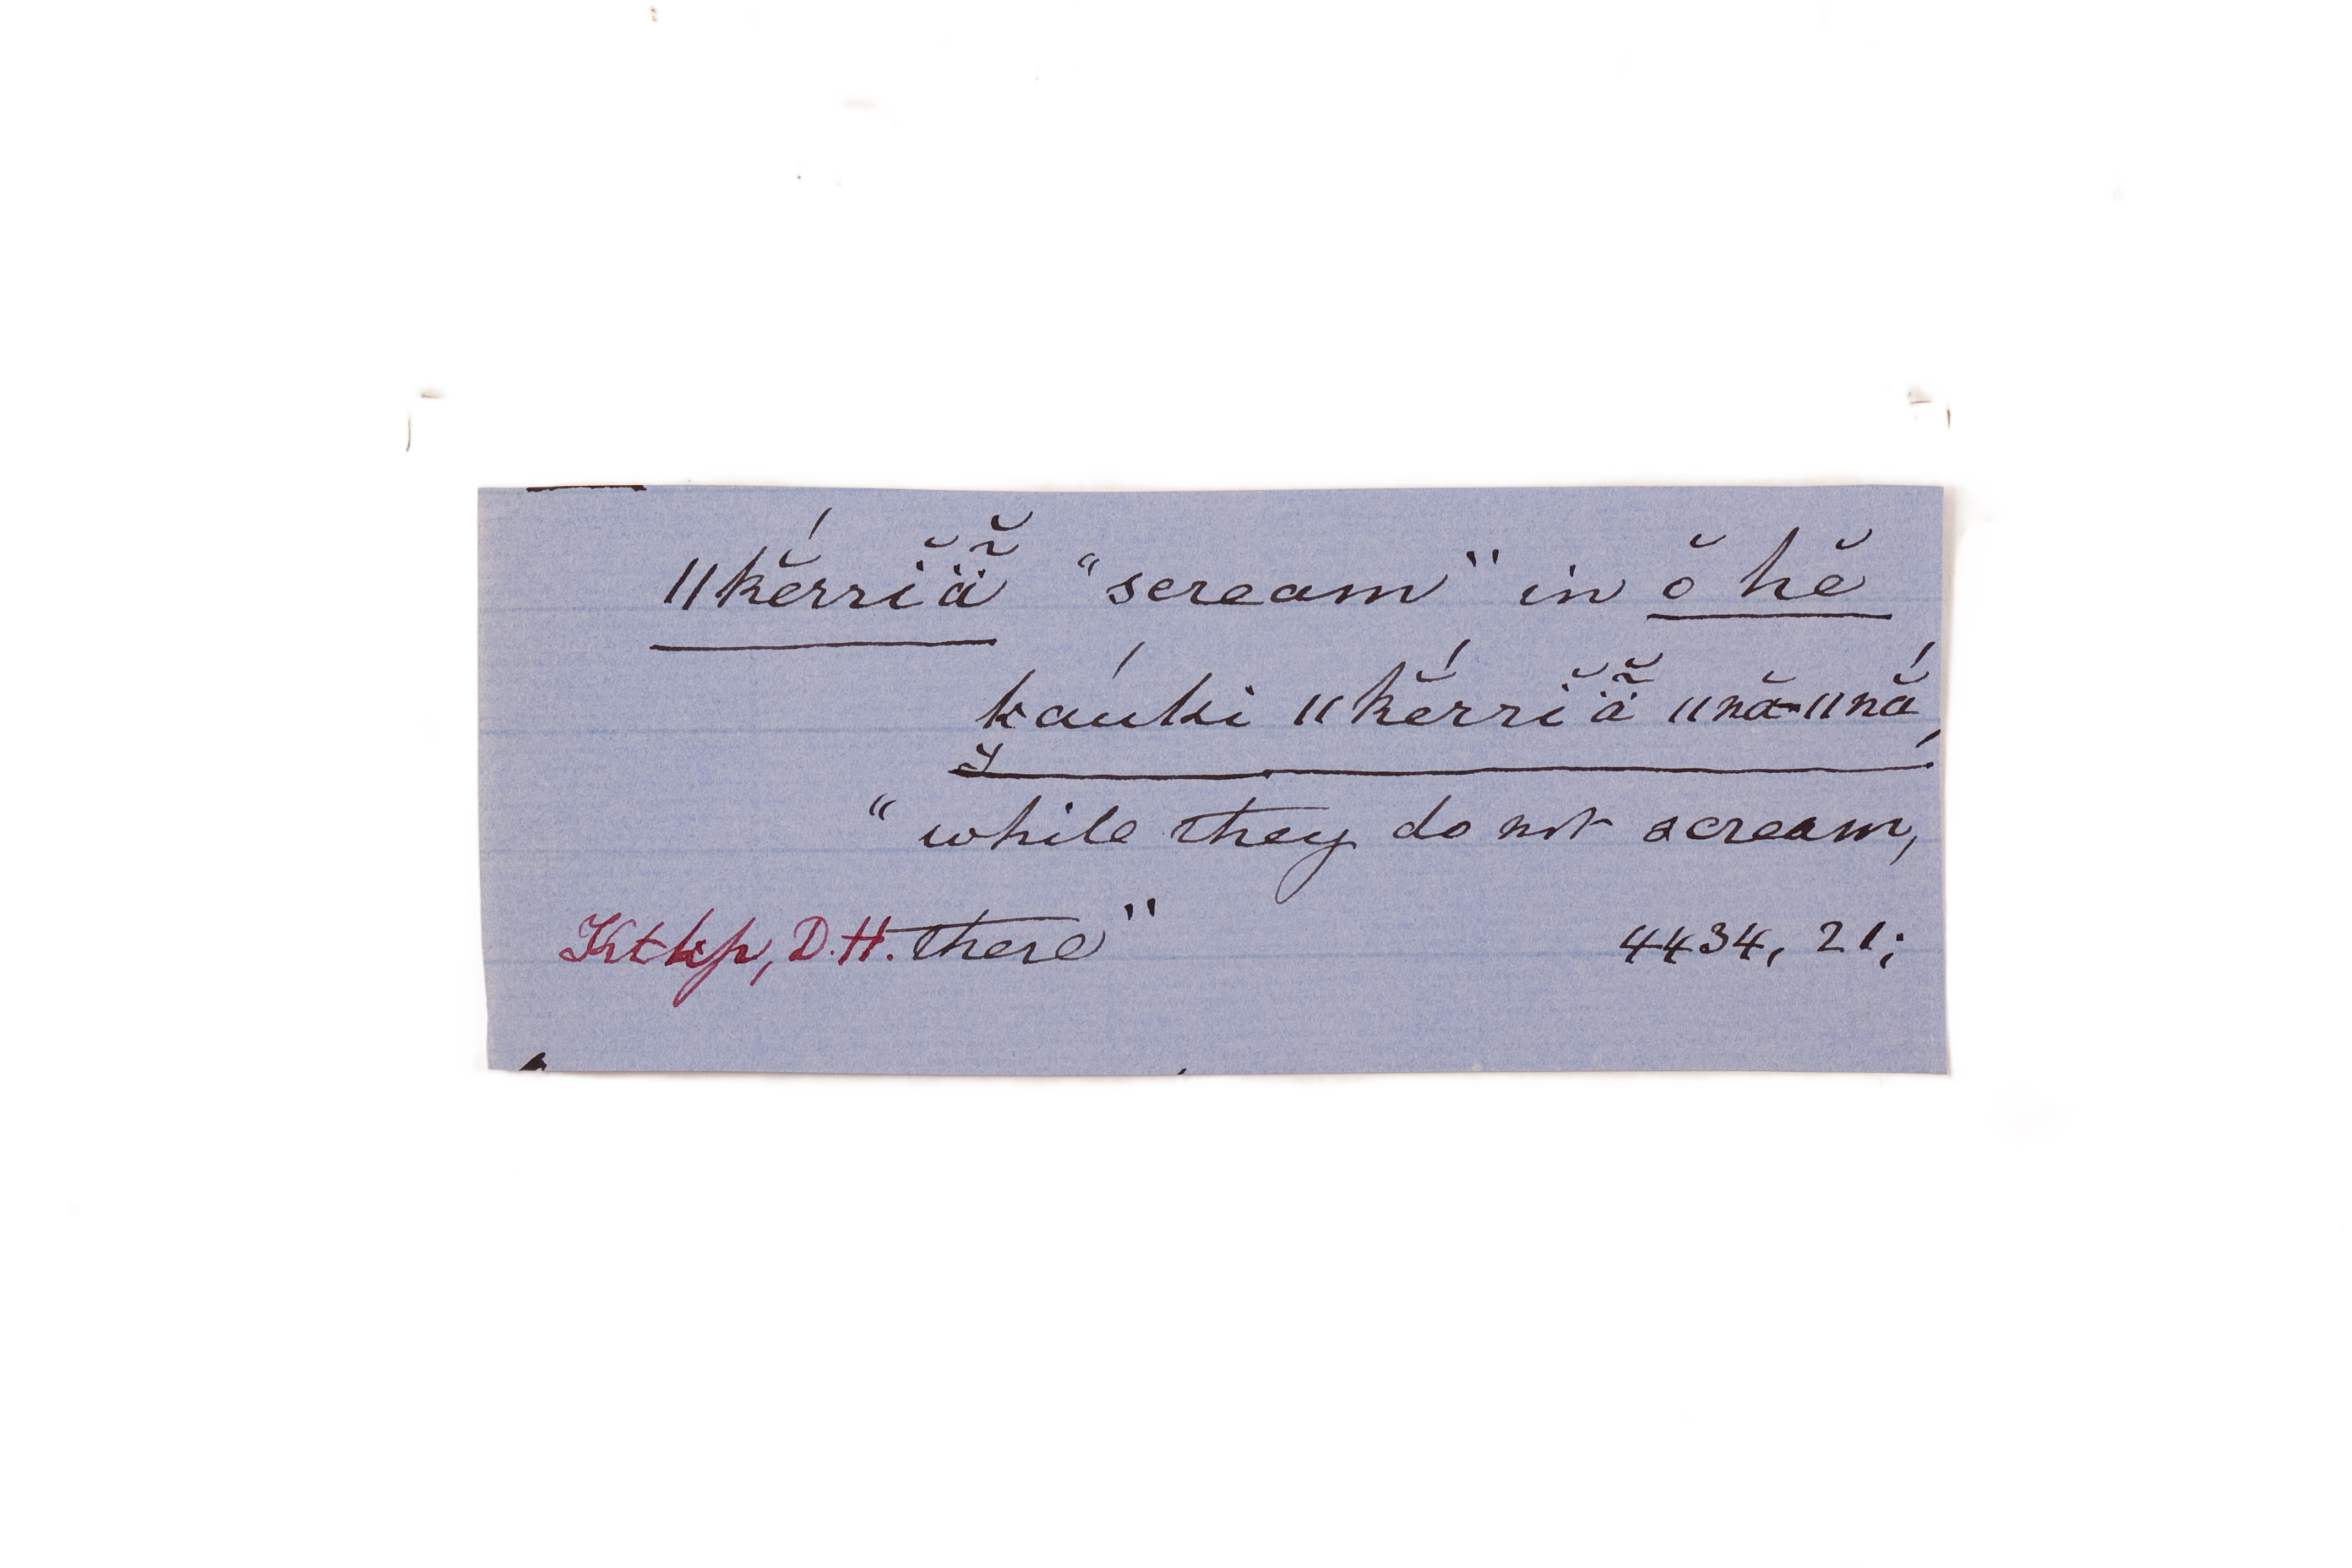 ǁkĕ́rrĭä̰̆ “scream” in ŏ hĕ
káuki ǁkĕ́rrĭä̰̆ ǁnă-ǁnắ,
“while they do not scream,
Ktkp, D.H. there” 4434, 21;